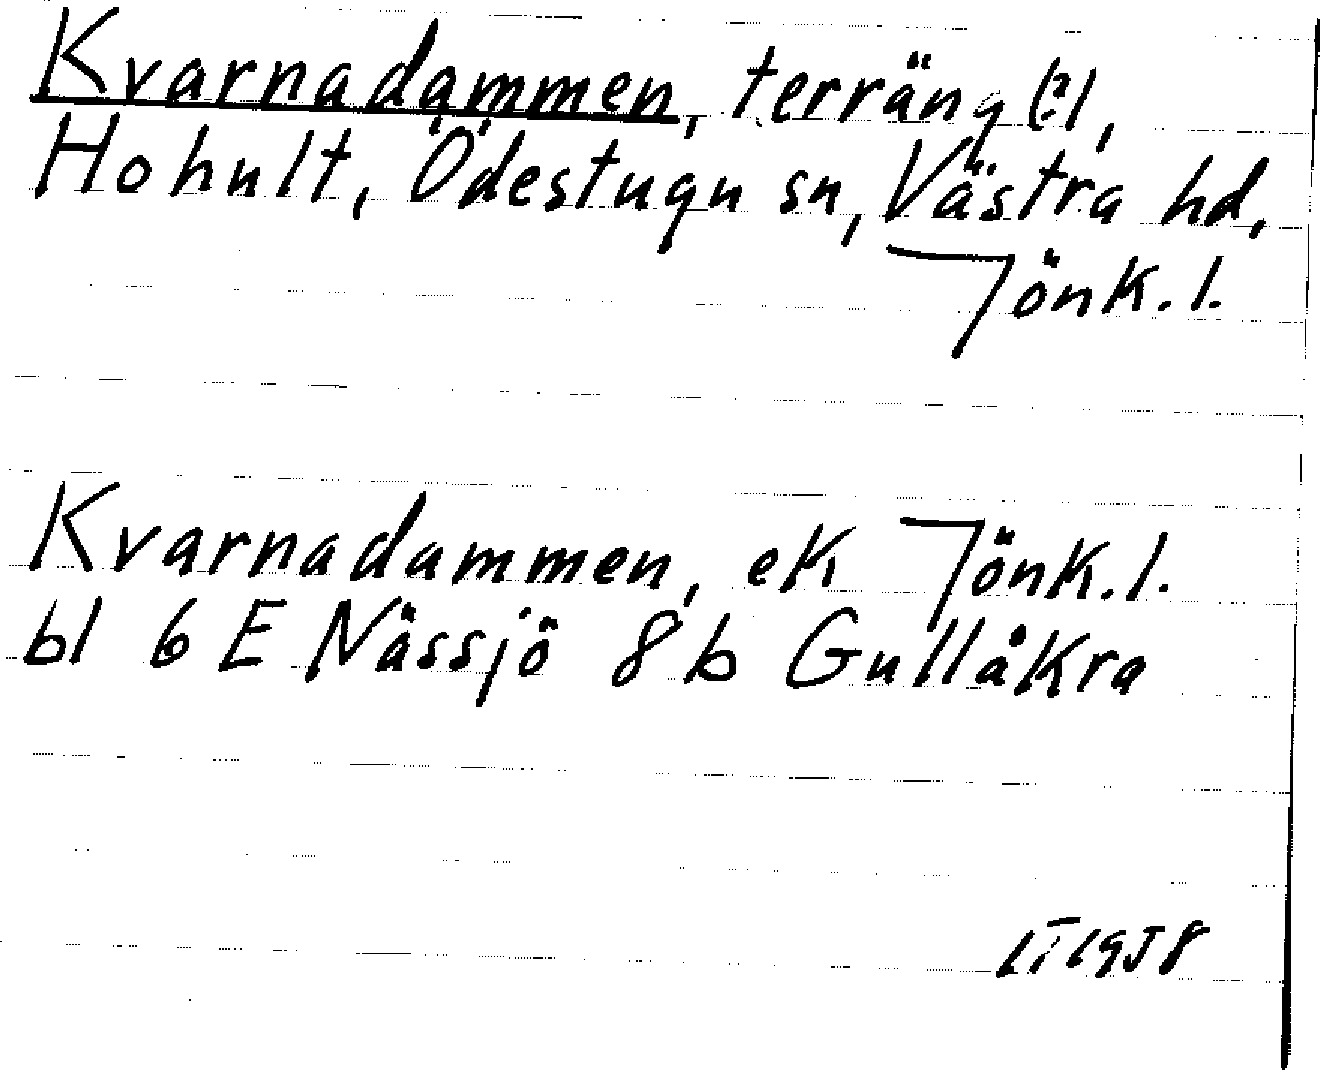 Kvarnadammen, terräng (?),
Hohult, Ödestugu sn, Västra hd,
Jönk. l.
Kvarnadammen, ek Jönk. l.
bl 6 E Nässjö 8 b Gullåkra
LT 1958